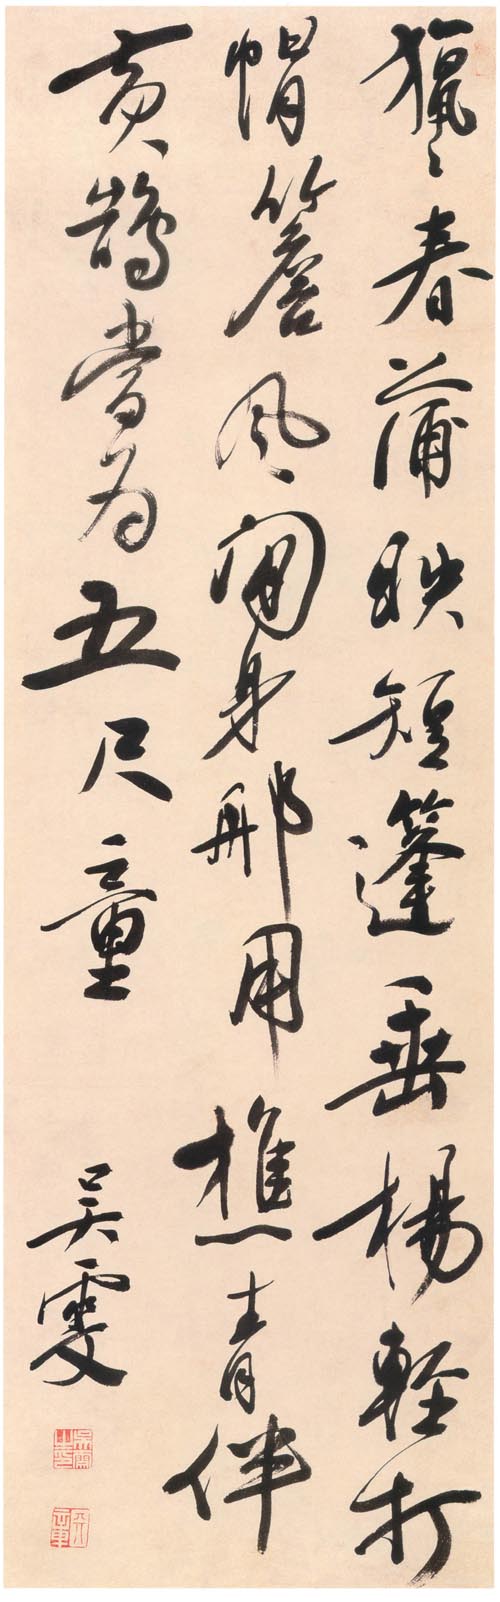 獵〻春蒲映短篷垂楊輕打
帽簷風閒身那用樵青伴
黃鵠當為五尺童
吳雯